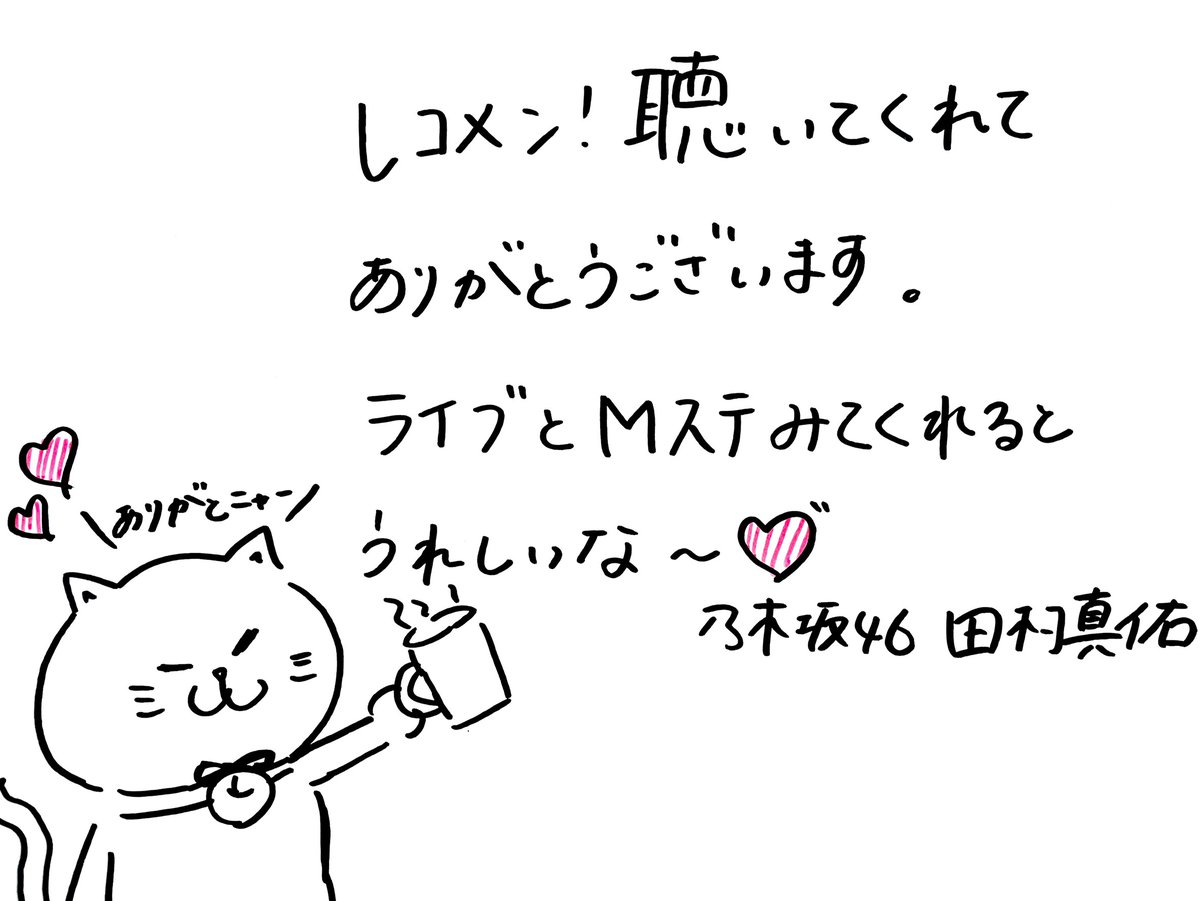 レコメン!聴いてくれて
ありがとうございます。
ライブとMステみてくれると
うれしいな〜
乃木坂46 田村真佑
ありがとニャー